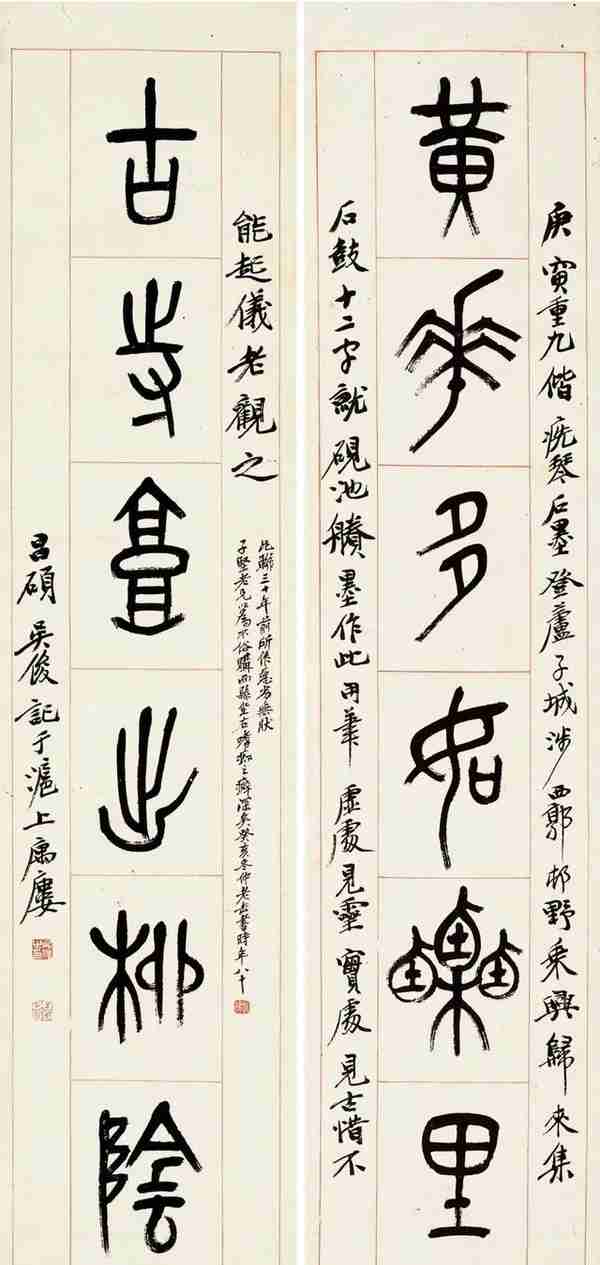 庚寅重九偕疣琴石墨登蘆子城涉西郭邨野乘興歸來集
黃華多如栗里
石鼓十二字就硯池賸墨作此用筆虛處見靈實處見古惜不
能起儀老觀之
此聯三十年前所作荒劣無狀
子堅老兄為不俗購而懸坐右嗜痂之癖深矣癸亥冬仲老缶書時年八十
古寺柳陰
昌碩吳俊記于滬上寓廔